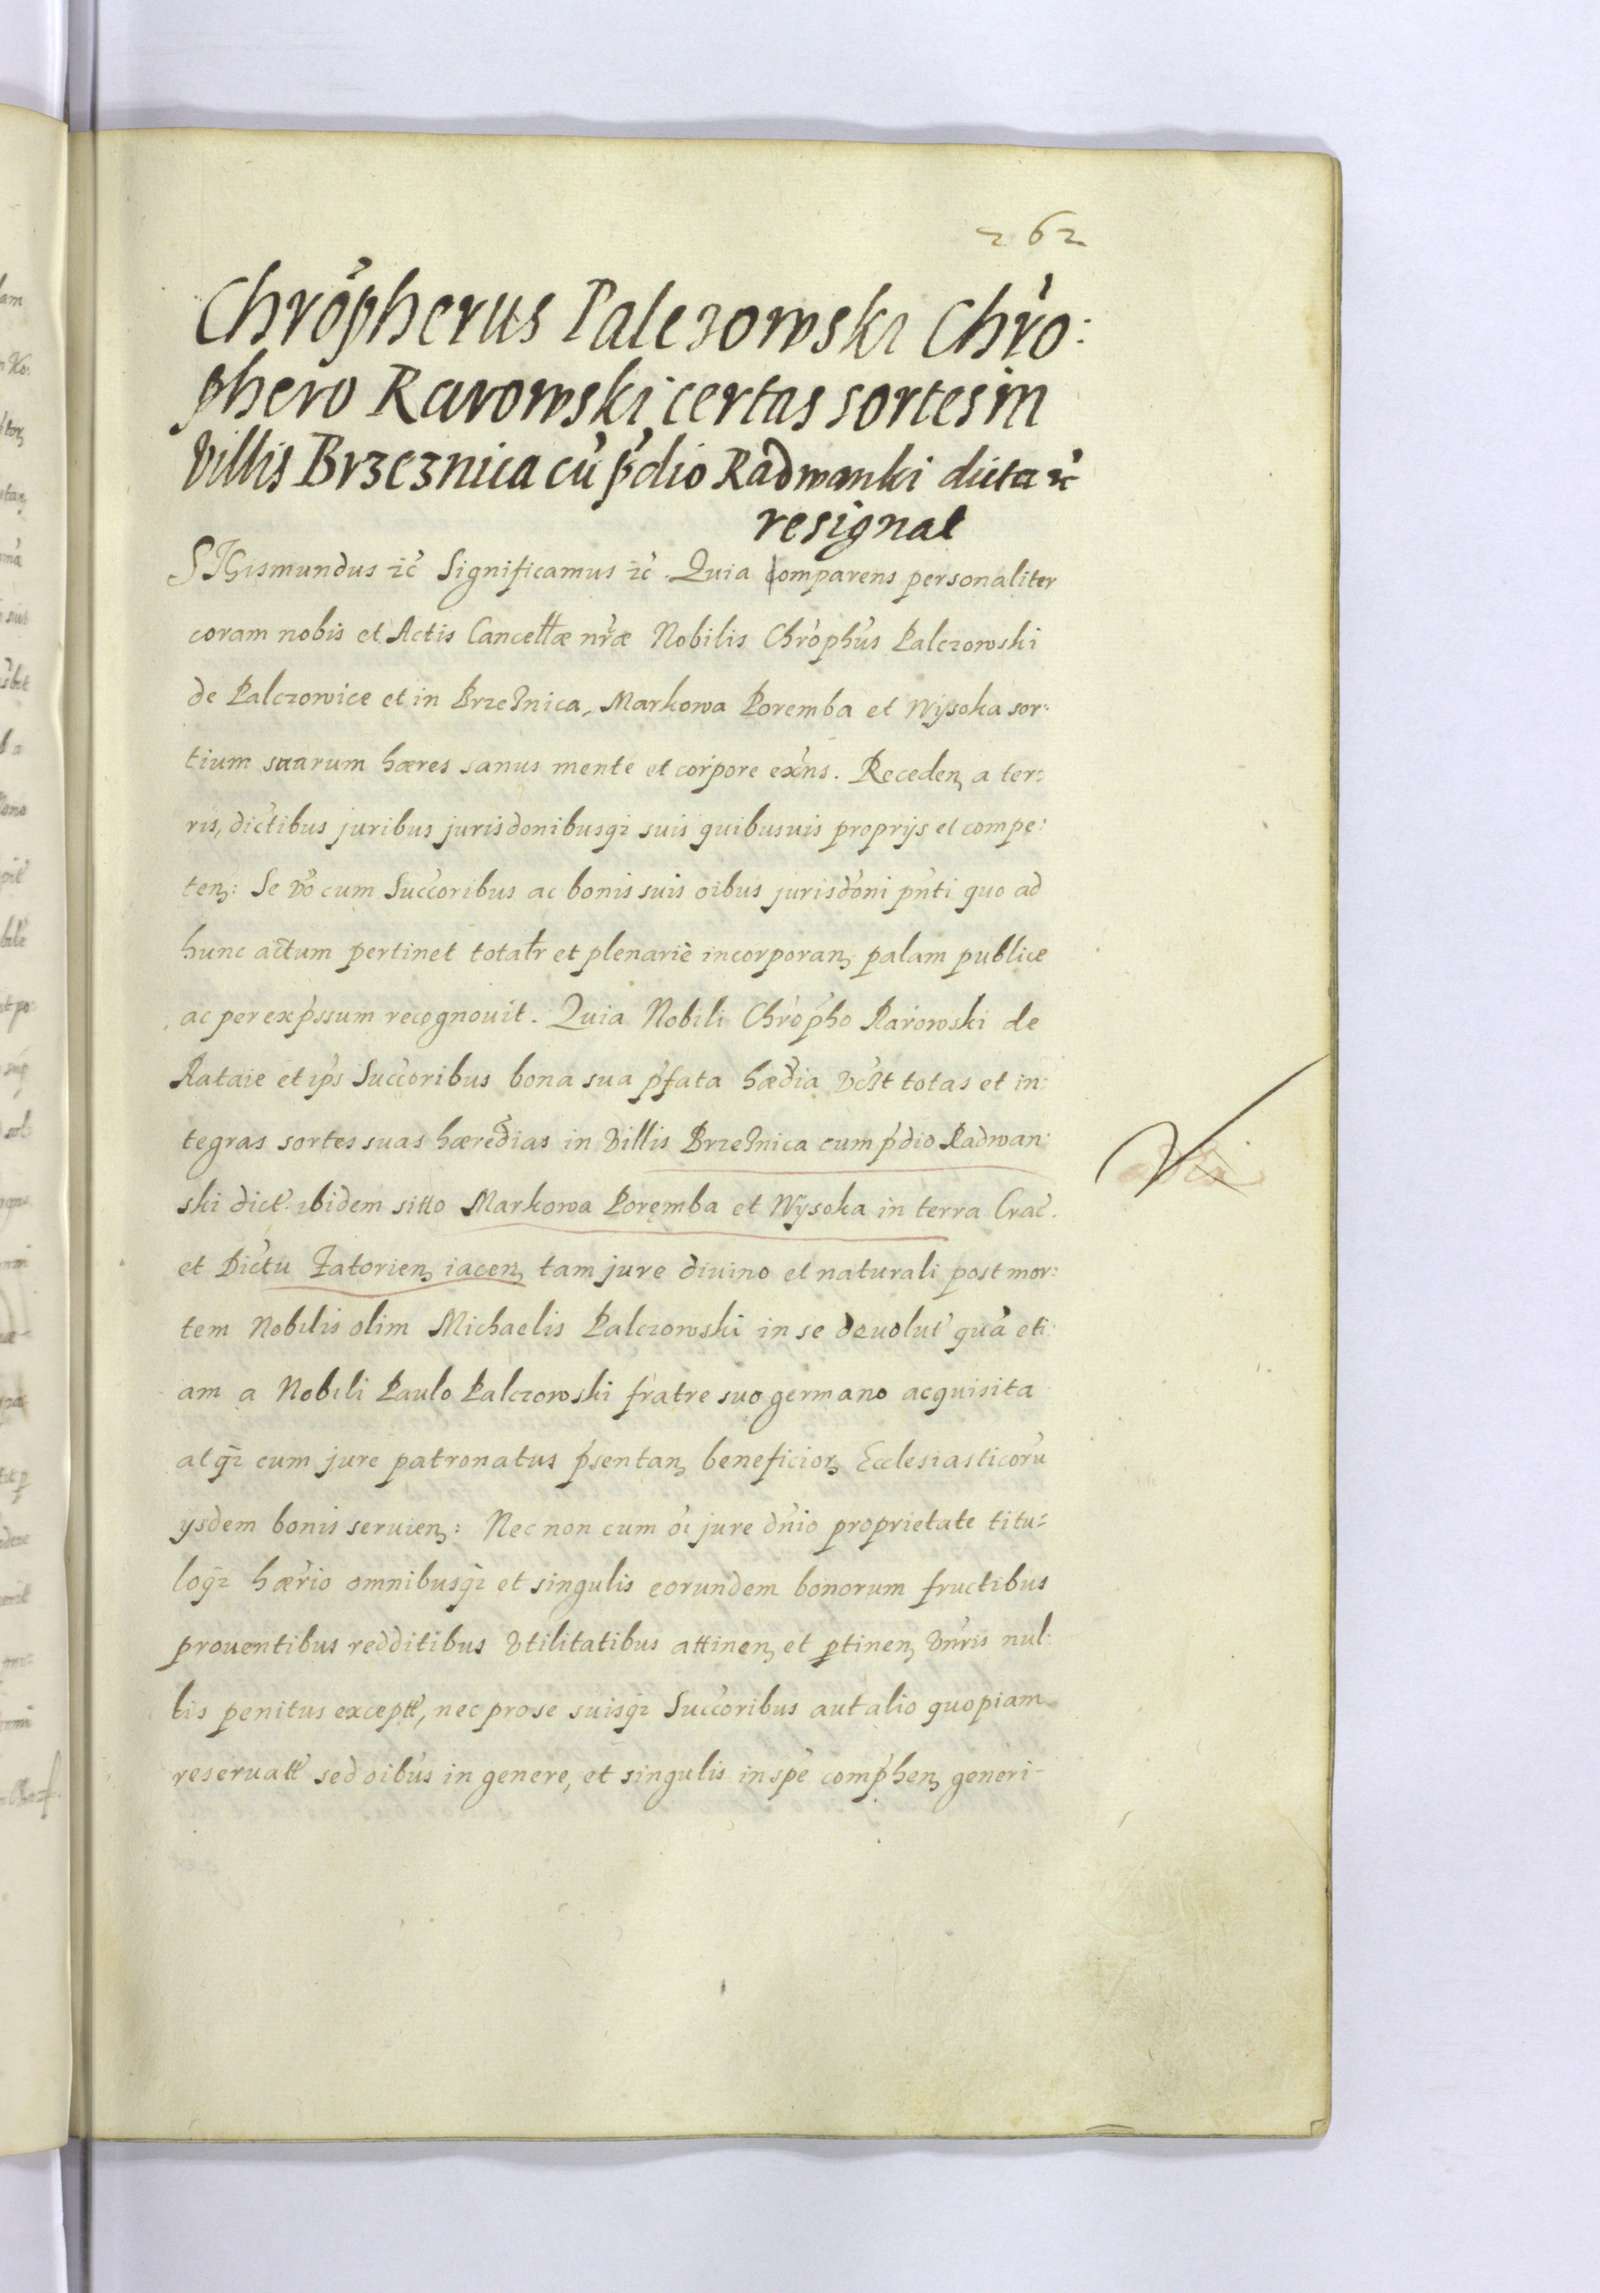 262
Chrõpherus Palczowski Chro:
phero Rarowski certas sortes in
Villis Brzeznica cu̓ p̓dio Radwanki dicta ꝛc̓
resignat
SIGismundus ꝛc̓ Significamus ꝛc̓. Quia comparens personaliter
coram nobis et Actis Cancellæ nr̓æ Nobilis Chrophu̓s Palczowski
de Palczowice et in Brzeznica, Markowa Poremba et Wysoka sor:
tium suarum hæres sanus mente et corpore ex̓ns. Recedenꝫ a ter:
ris, dic̓tibus juribus jurisdonibusqꝫ suis quibusuis proprijs et compe:
tenꝫ: Se v̓o cum Succ̓oribus ac bonis suis oibus jurisdo̓ni pn̓ti quo ad
hunc actum pertinet totalr et plenariè incorporanꝫ palam publice
ac per exp̓ssum recognouit. Quia Nobili Chrop̓ho Rarowski de
Rataie et ip̓s Succ̓oribus bona sua p̓fata hædia vc̓lt totas et in:
tegras sortes suas hæredias in Villis Brzeznica cum p̓dio Radwan:
ski dict̓. ibidem sitto Markowa Poręmba et Wysoka in terra Crac̓.
et Dic̓tu Zatorienꝫ iacenꝫ tam jure diuino et naturali post mor:
tem Nobilis olim Michaelis Palczowski in se deuolut̓ qua̓ eti:
am a Nobili Paulo Palczowski fratre suo germano acquisita
atqꝫ cum jure patronatus p̓sentanꝫ beneficiorꝫ Ecclesiasticoru̓
ysdem bonis seruienꝫ: Nec non cum oi̓ jure dn̓io proprietate titu:
loqꝫ hær̓io omnibusqꝫ et singulis eorundem bonorum fructibus
prouentibus redditibus Vtilitatibus attinenꝫ et ꝑtinenꝫ Vn̓ris nul:
lis penitus except̓, nec pro se suisqꝫ Succ̓oribus aut alio quopiam
reseruatt̓ sed oibu̓s in genere, et singulis in spe̓ comp̓henꝫ generi-